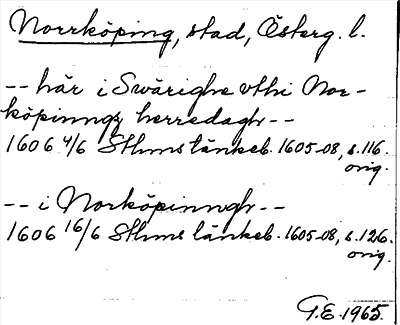 Norrköping, stad, Österg. l.
-- här i Swärighe vthi Nor-
köpinngz herredagh --
1606 4/6 Sthms tänkeb. 1605-08, s. 116.
orig.
-- i Norköpinngh --
1606 16/6 Sthms tänkeb. 1605-08, s. 126.
orig.
G.E. 1965.